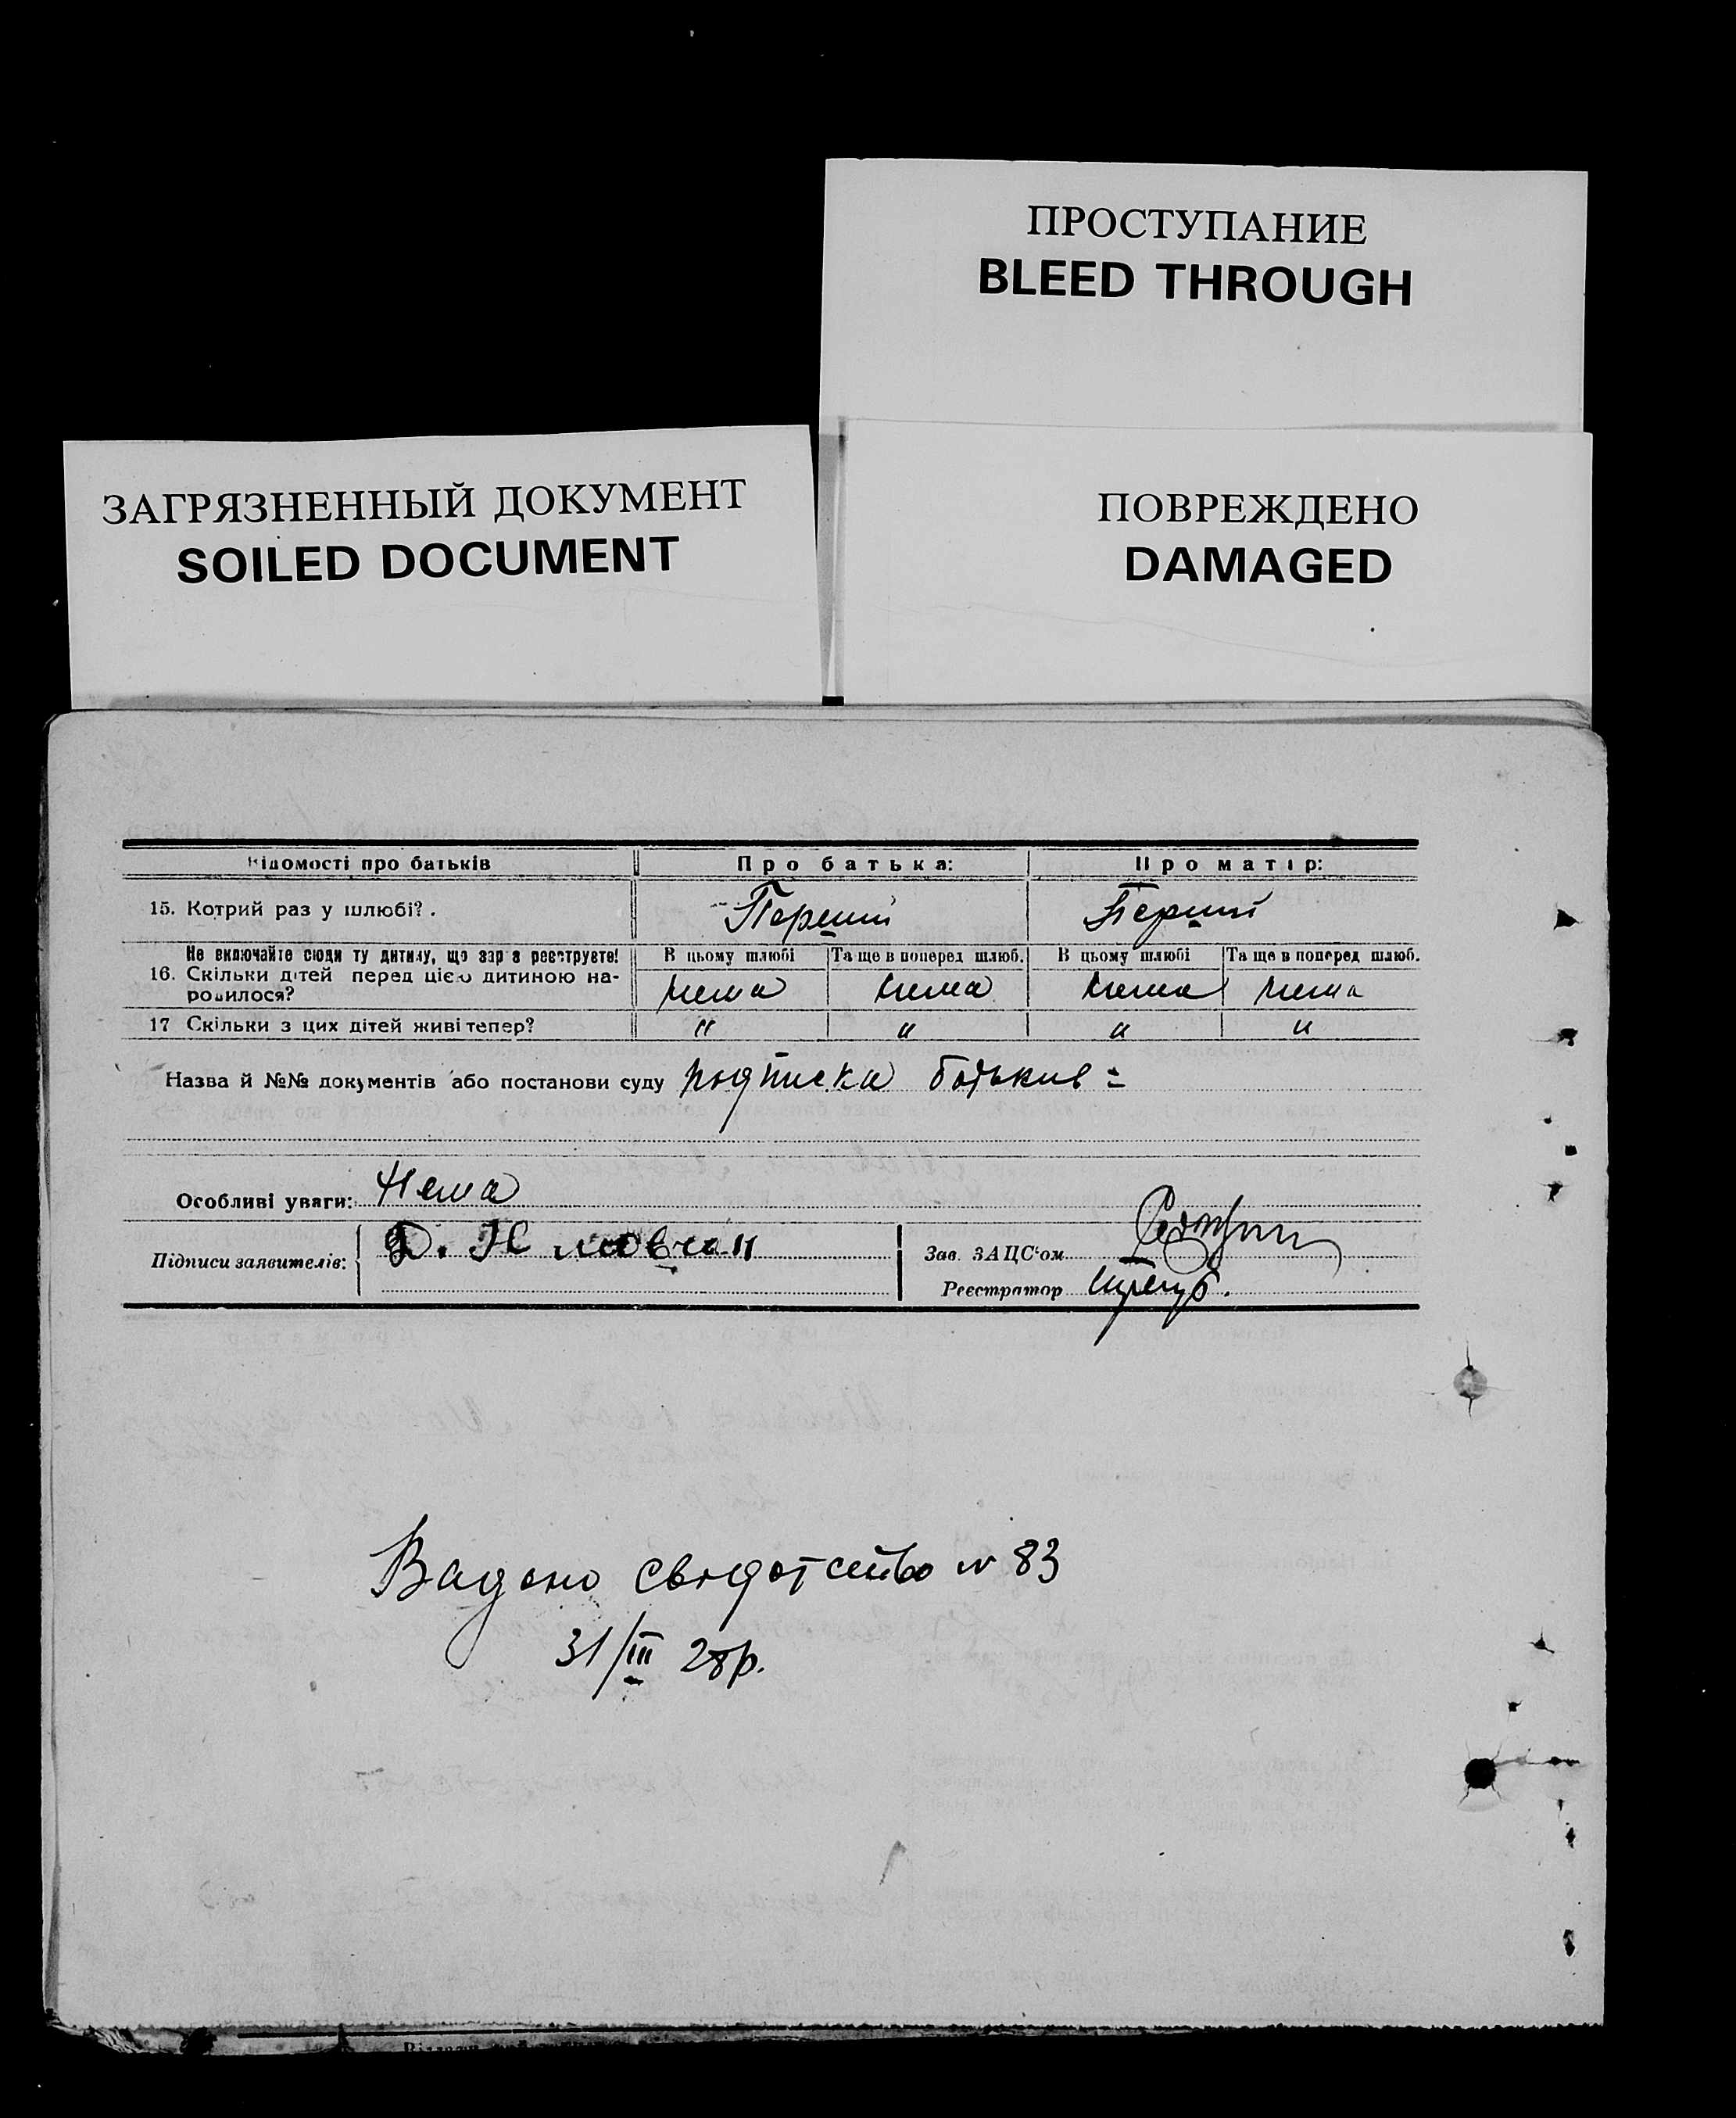 ПРОСТУПАНИЕ
BLEED THROUGH
ЗАГРЯЗНЕННЫЙ ДОКУМЕНТ
SOILED DOCUMENT
ПОВРЕЖДЕНО
DAMAGED
Відомості про батьків Про батька: Про матір:
15. Котрий раз у шлюбі?. Перший Перший
Не включайте сюди ту дитину, що зараз реєструєте! В цьому шлюбі Та ще в поперед шлюб. В цьому шлюбі Та ще в поперед шлюб.
16. Скільки дітей перед цією дитиною на- Нема Нема Нема Нема
родилося?
17 Скільки з цих дітей живі тепер? " " " "
Назва й №№ документів або постанови суду подписка батькив =
Особливі уваги: Нема
Підписи заявителів: Д.
Зав. ЗАЦС'ом
Реєстратор
Вадано свидотство № 83
31/III 28р.